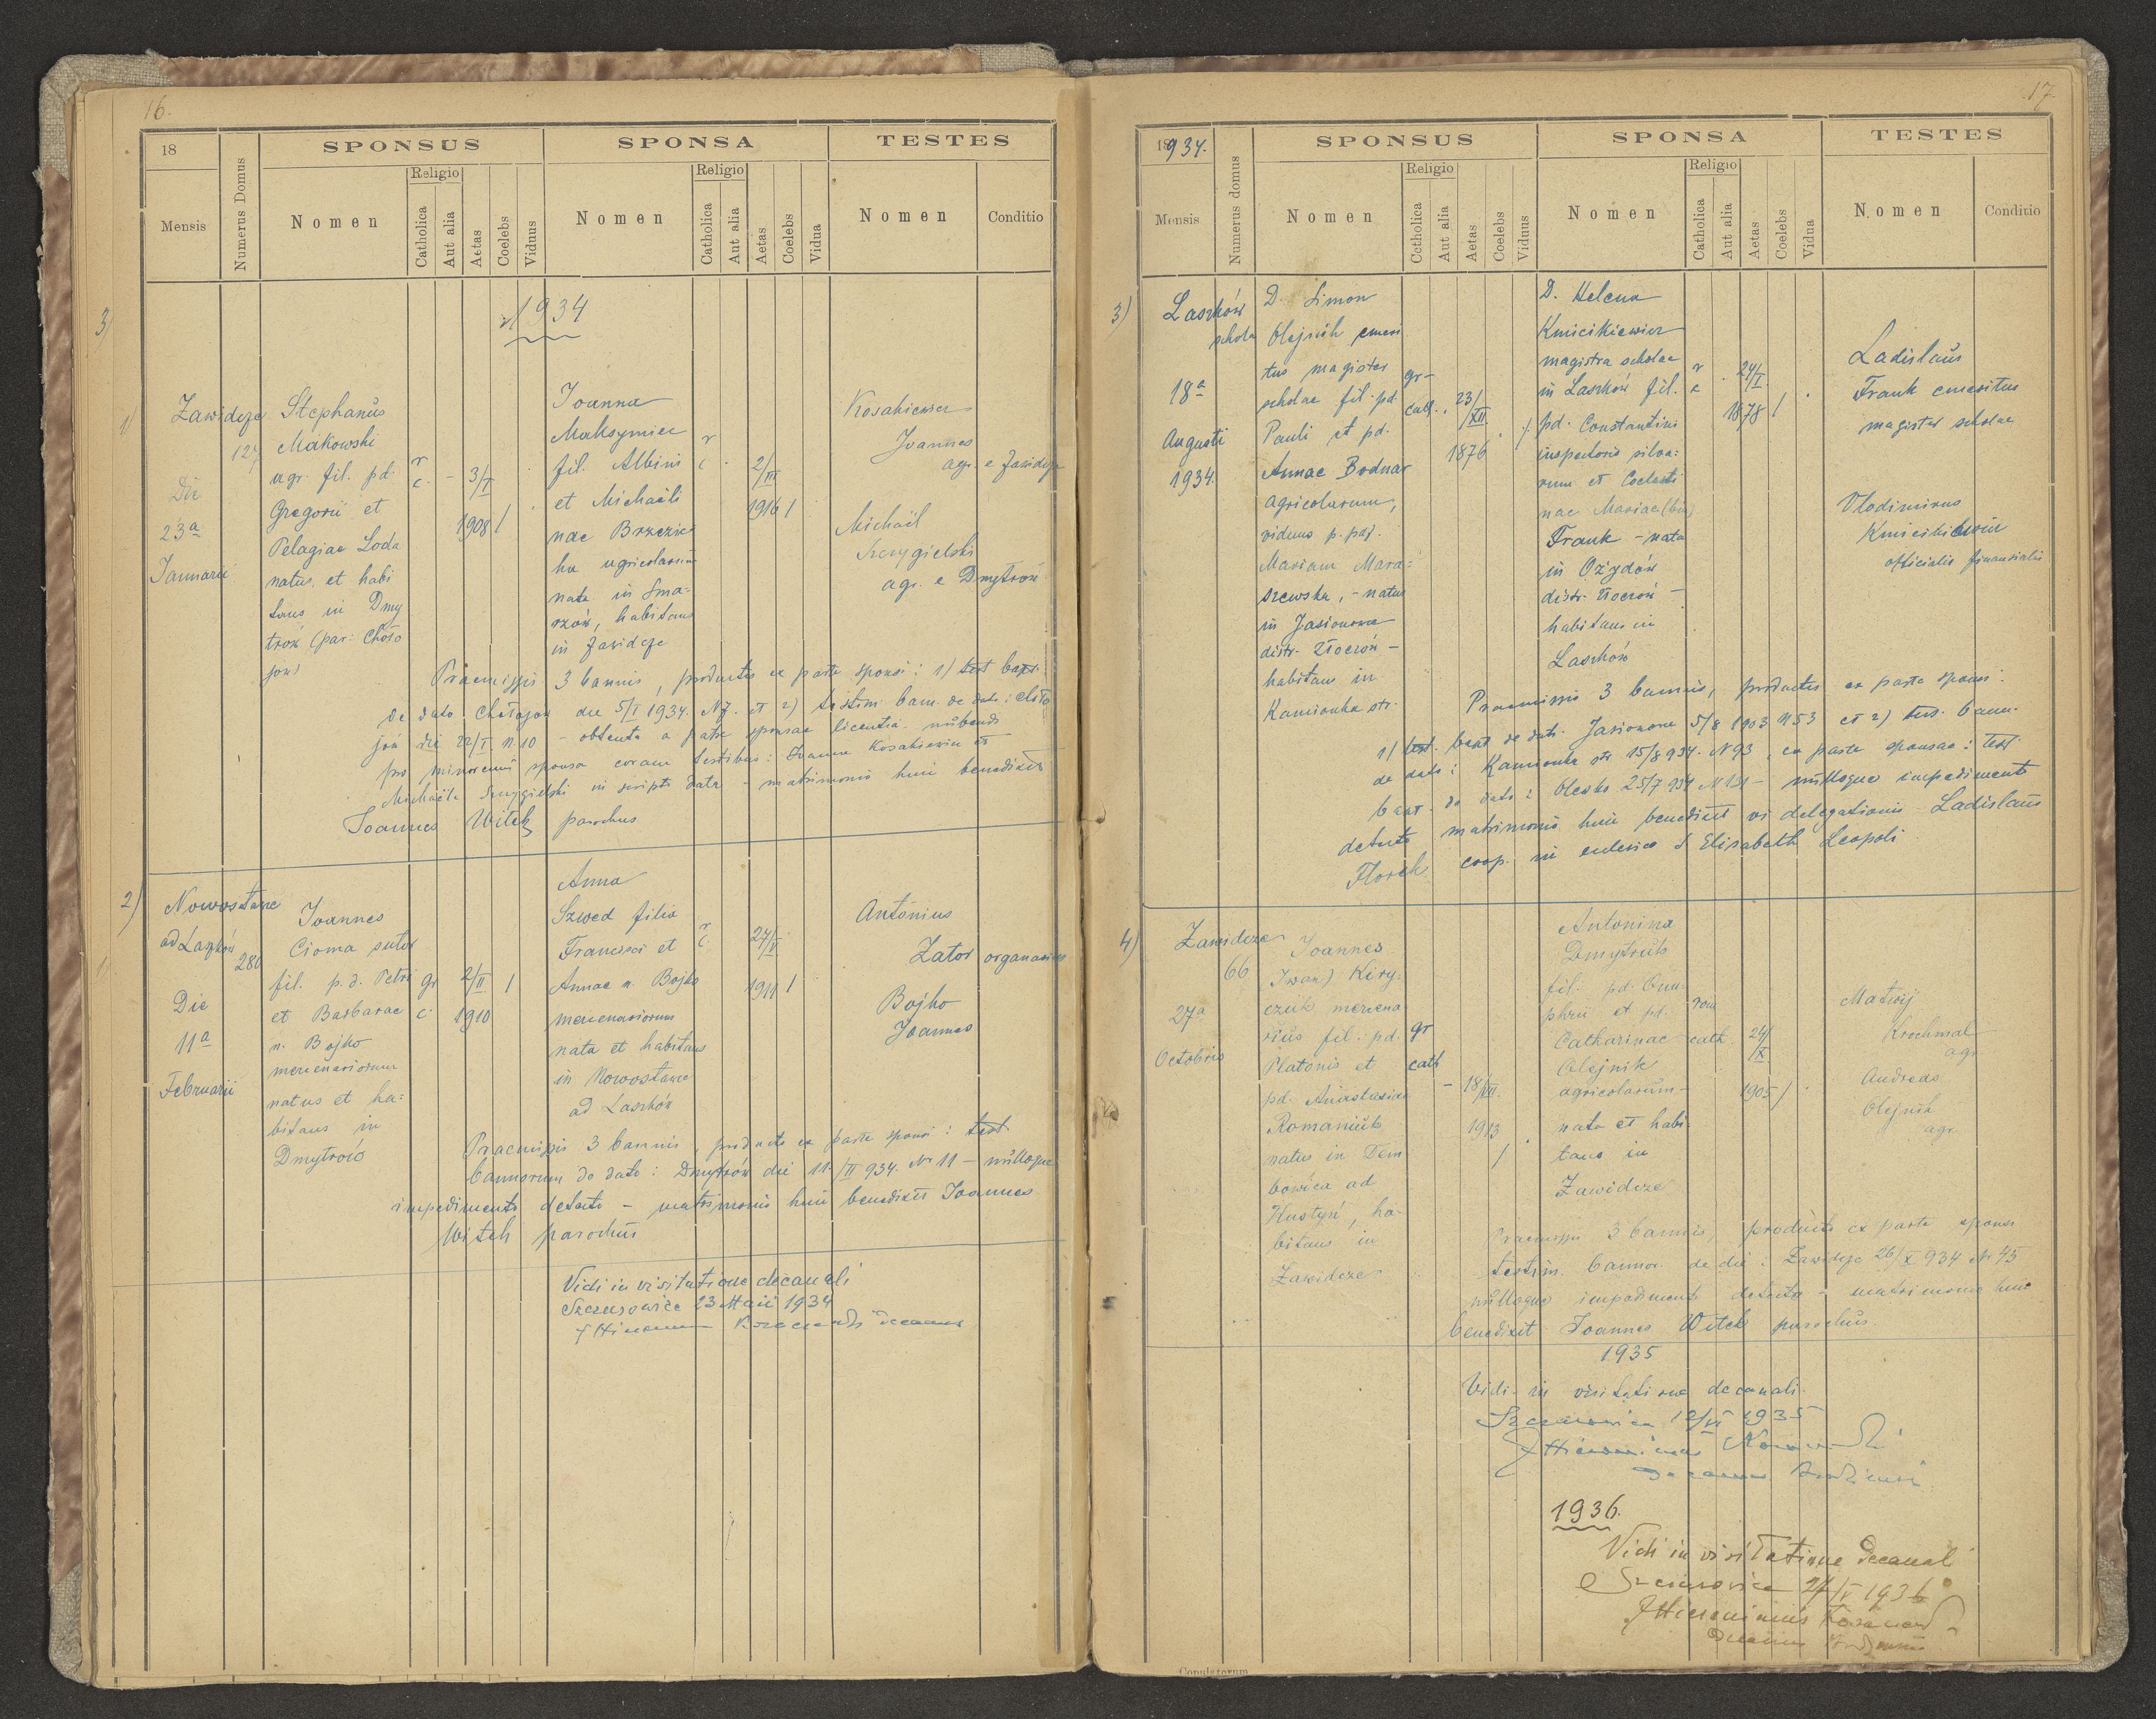 16.
18
Mensis
Numerus Domus
SPONSUS
Nomen
Religio
Catholica
Aut alia
Aetas
Coelebs
Viduus
SPONSA
Nomen
Religio
Catholica
Aut alia
Aetas
Coelebs
Vidua
TESTES
Nomen
Conditio
3)
1934
1)
Zawidcze
127
Die
23a
Januarii
Stephanus
Makowski
agr. fil. pd.
Gregorii et
Pelagiae Loda
natus et habi
tans in Dmy
trów (par: Choło
jów)
r
c.
3/I
1908
Joanna
Maksymiec
fil. Albini
et Michaeli
nae Brzezic
ka agricolarum
nata in Sma-
rzów, habitans
in Zawidcze
r
c
2/III
1916
Kosakiewicz
Joannes
agr. e Zawidcze
Michaël
Szczygielski
agr. e Dmytrów
Praemissis 3 bannis, productis ex parte sponsi: 1) test bapt.
de dato Chołojów die 5/I 1934. N7. et 2) testim bann. de dato: Choło
jów die 22/I. N 10 - obtenta a patre sponsae licentia nubendi
pro minorenni sponsa coram testibus: Joanne Kosakiewicz et
Michaële Szczygielski in scripto data - matrimonio huic benedixit
Joannes Witek parochus
2)
Nowostawce
ad Laszków
280
Die
11a
Februarii
Joannes
Cioma sutor
fil. p.d. Petri
et Barbarae
n. Bojko
mercenariorum
natus et ha=
bitans in
Dmytrów
gr
c.
2/II
1910
Anna
Szwed filia
Francisci et
Annae n. Bojko
mercenariorum
nata et habitans
in Nowostawce
ad Laszków
r
c.
27/V
1911
Antonius
Zator organarius
Bojko
Joannes
Praemissis 3 bannis, producto ex parte sponsi: test
bannorum de dato: Dmytrów die 11./II 934. Nr 11 - nulloque
impedimento detecto - matrimonio huic benedixit Joannes
Witek parochus
Vidi in visitatione decanali
Szczurowice 23 Maii 1934
decanus
17
1934.
Mensis
Numerus domus
SPONSUS
Nomen
Religio
Catholica
Aut alia
Aetas
Coelebs
Viduus
SPONSA
Nomen
Religio
Catholica
Aut alia
Aetas
Coelebs
Vidua
TESTES
Nomen
Conditio
3)
Laszków
schola
18a
Augusti
1934.
D. Simon
Olejnik emeri
tus magister
scholae fil. pd.
Pauli et pd.
Annae Bodnar
agricolarum,
viduus p. pd.
Mariam Mara=
szewska, - natus
in Jasionow
distr. Złoczów -
habitans in
Kamionka str.
gr-
cath.
23/XII.
1876
D. Helena
Kmicikiewicz
magistra scholae
in Laszków fil.
pd. Constantini
inspectoris silva=
rum et Coelesti
nae Mariae
Frank - nata
in Ożydów
distr. Złoczów -
habitans in
Laszków
r
c
24/I.
1878
Ladislaus
Frank emeritus
magister scholae
Vlodimirus
Kmicikiewicz
officialis financialis
Praemissis 3 bannis, productis ex parte sponsi:
1) test. bapt de dato Jasionow 5/8 1903 N 53 et 2) test. bann.
de dato: Kamionka str 15/8 934. N 93, ex parte sponsae: test.
bapt. de dato: Olesko 25/7 934 N 131 - nulloque impedimento
detecto matrimonio huic benedixit vi delegationis Ladislaus
Florek coop. in ecclesia S Elisabeth Leopoli
4)
Zawidcze
66
27a
Octobris
Joannes
(Iwan) Kiry
czuk mercena
rius fil. pd.
Platonis et
pd. Anastasiae
Romaniuk
natus in Tem
bowica ad
Kustyń, ha-
bitans in
Zawidcze
gr
cath
18/VII.
1913
Antonina
Dmytruk
fil. pd. Onu-
phrii et pd.
Catharinae
Olejnik
agricolarum -
nata et habi
tans in
Zawidcze
rom
cath.
24/X
1905
Matwij
Krochmal
agr
Andreas
Olejnik
agr.
Praemissis 3 bannis, producto ex parte sponsi
testim. bannor. de die: Zawidcze 26/X 934 Nr 45
nulloque impedimento detecto - matrimonio huic
benedixit Joannes Witek parochus.
1935
Vidi in visitatione decanali
Szczurowice 12/VI 1935
Hieronimus
decanus
1936.
Vidi in visitatione decanali
Szczurowice 27/V 1936
Hieronimus
decanus
Copulatorum